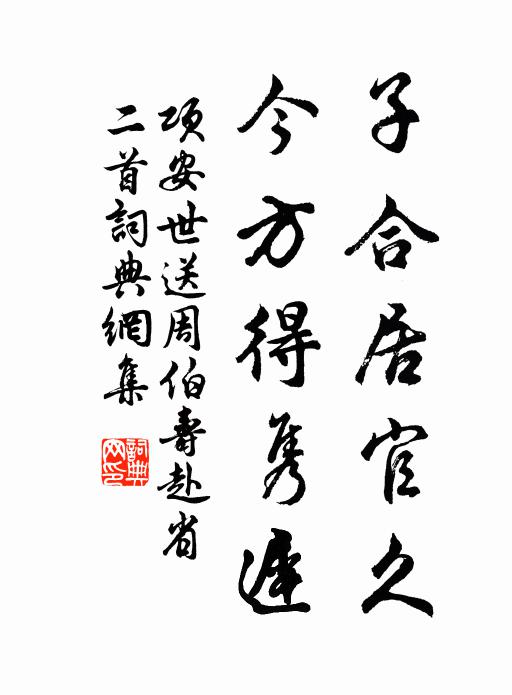 子合居官久
今方得隽遲
項安世送周伯壽赴省
二首詞典網集
詞典網印